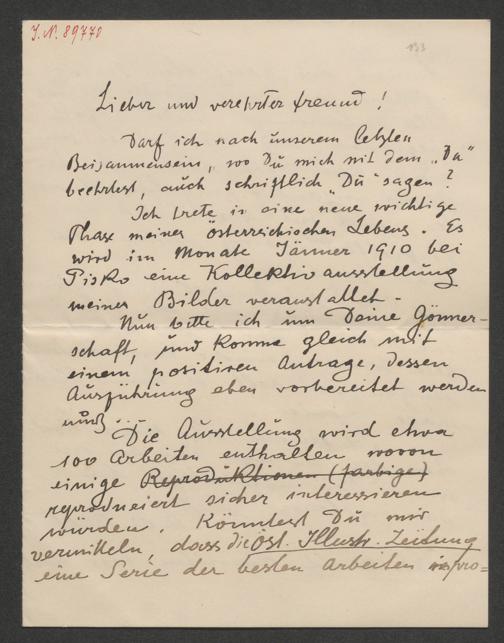 J. N. 89770
133
Lieber und verehrter Freund!
Darf ich nach unserem letzten
Beisammensein, wo Du mich mit dem „Du“
beehrtest, auch schriftlich „Du“ sagen?
Ich trete in eine neue wichtige
Phase meines österreichischen Lebens. Es
wird im Monate Jänner 1910 bei
Pisko eine Kollektivausstellung
meiner Bilder veranstaltet.
Nun bitte ich um Deine Gönner-
schaft, und komme gleich mit
einem positiven Antrage, dessen
Ausführung eben vorbereitet werden
muß...
Die Ausstellung wird etwa
100 Arbeiten enthalten wovon
einige Reproduktionen (farbige)
reproduciert sicher interessieren
würden. Könntest Du mir
vermitteln, dass die Öst. Illustr. Zeitung
eine Serie der besten Arbeiten